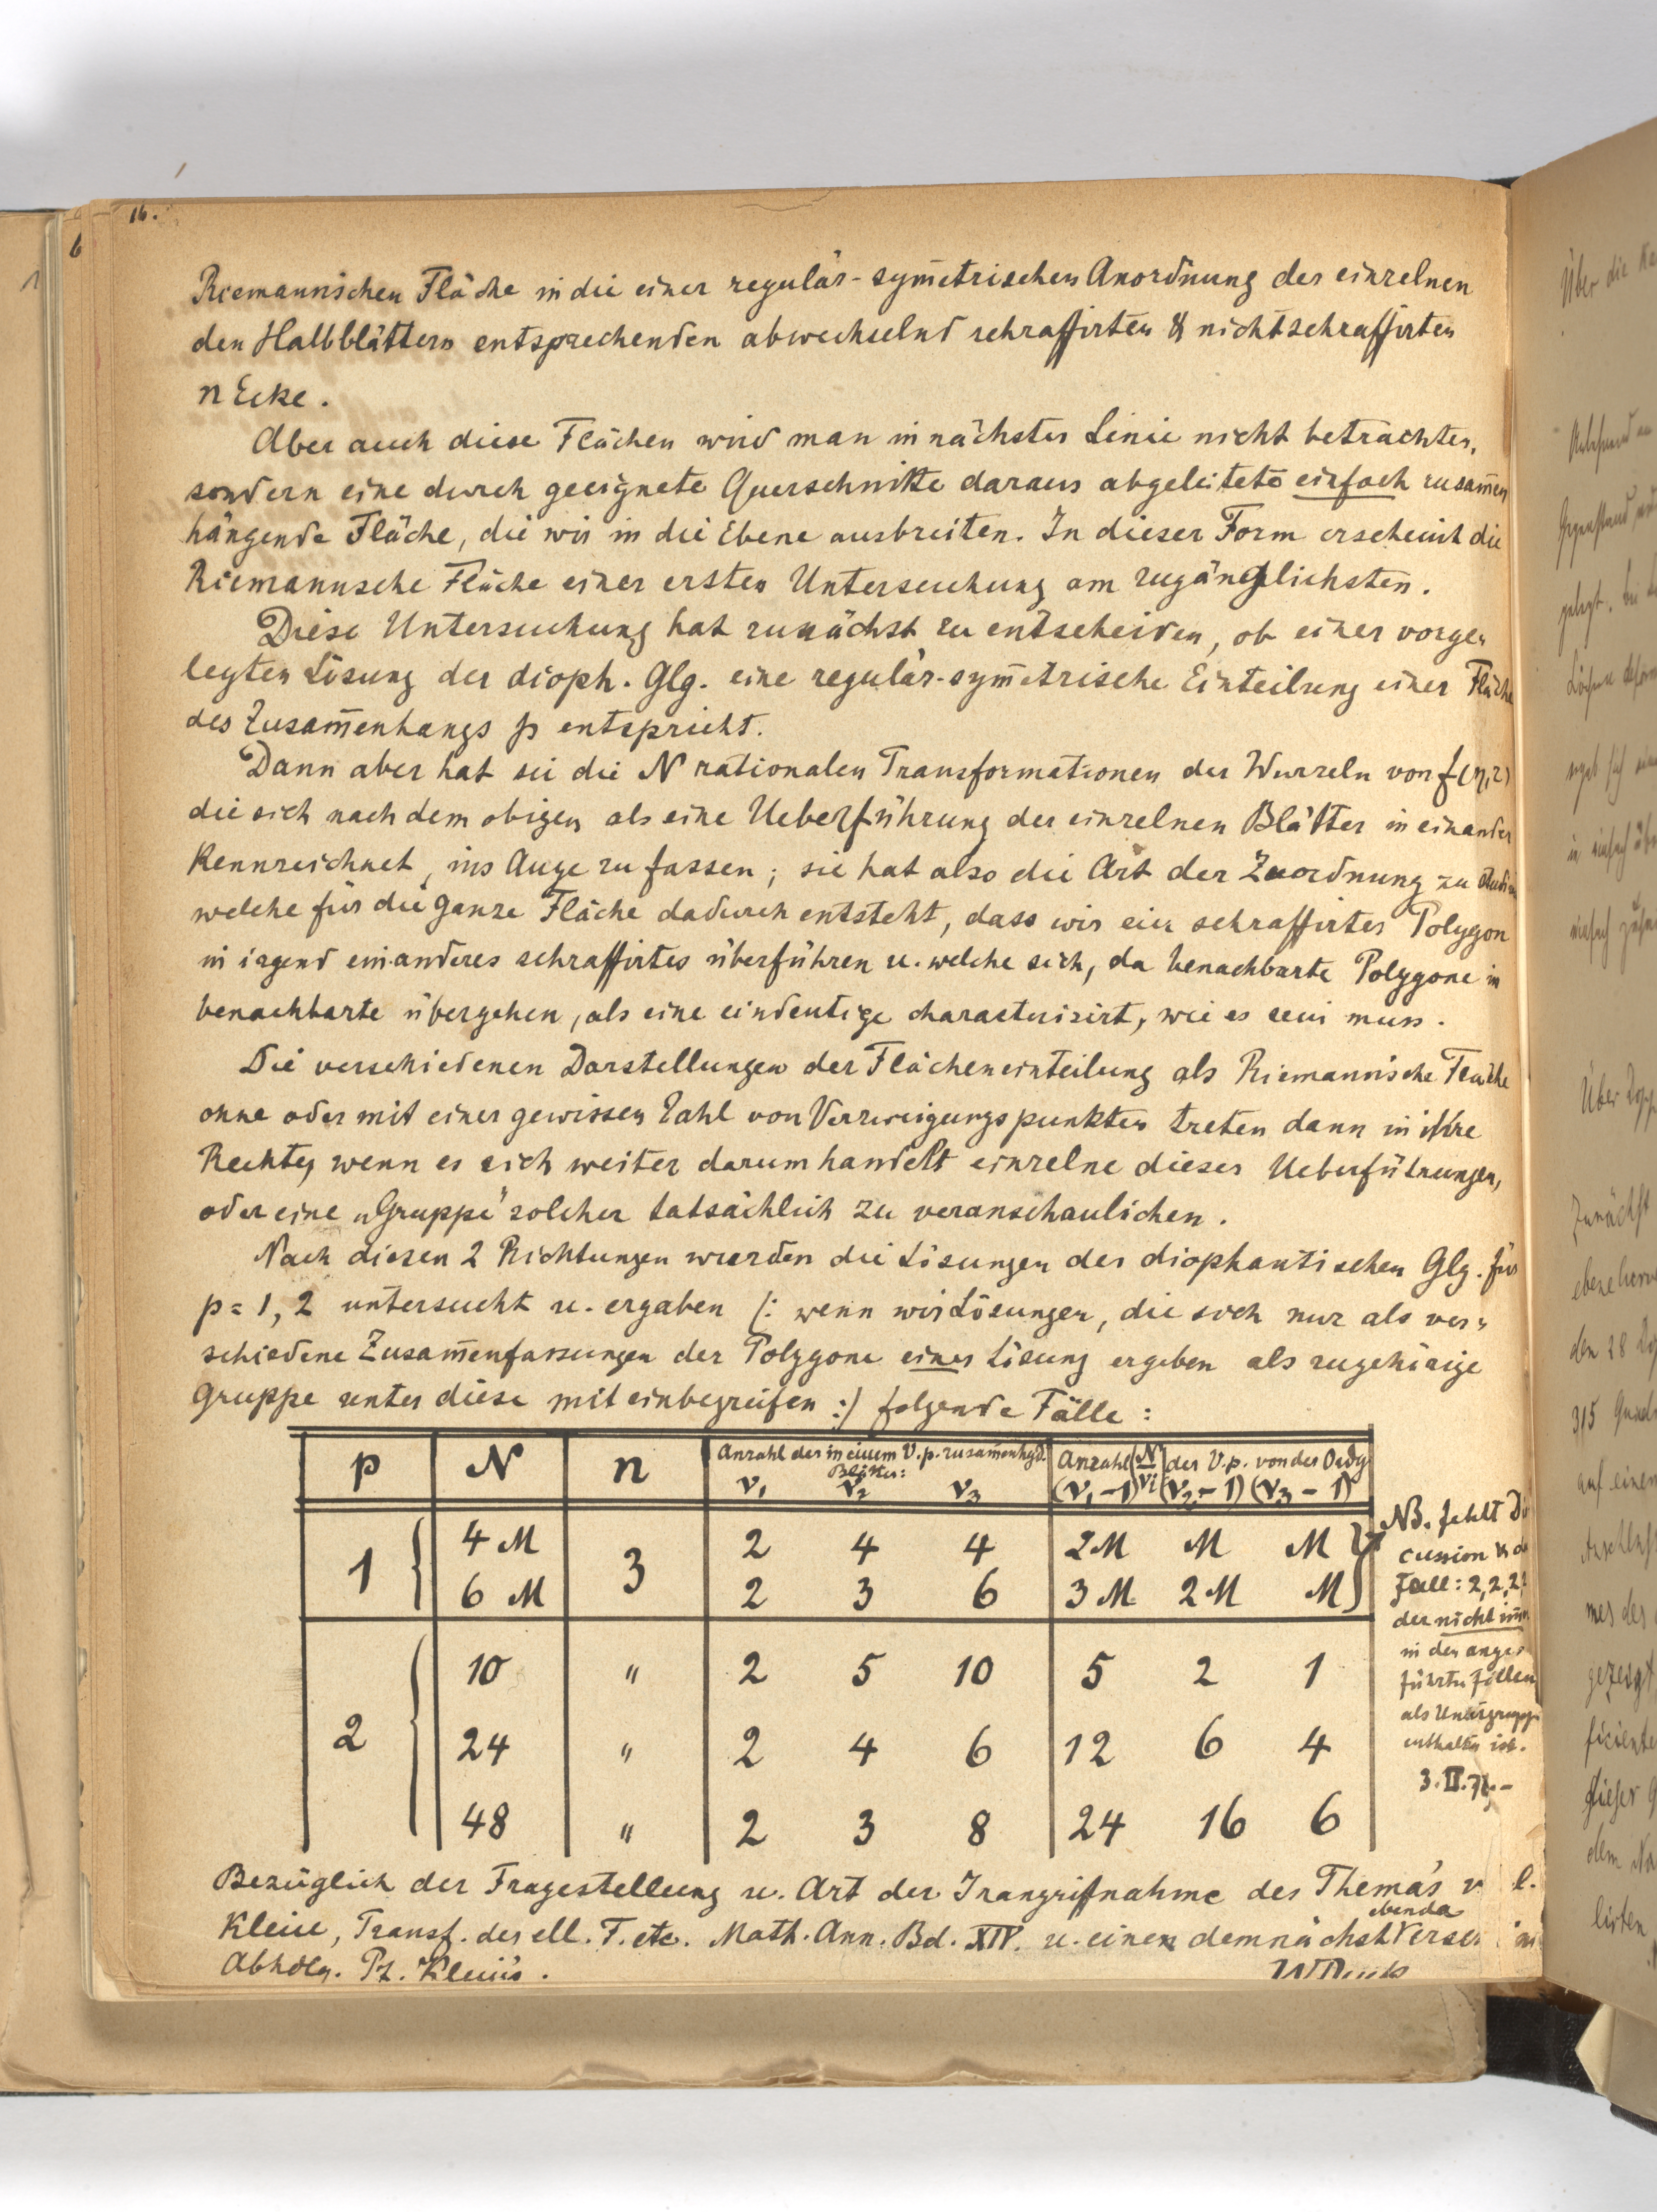 16.
Riemannischen Fläche in die einer regulär-sym̅etrischen Anordnung der einzelnen
den Halbblättern entsprechenden abwechselnd schraffirten & nichtschraffirten
n Ecke.
Aber auch diese Flächen wird man in nächster Linie nicht betrachten,
sondern eine durch geeignete Querschnitte daraus abgeleitete einfach zusam̅en
hängende Fläche, die wir in die Ebene ausbreiten. In dieser Form erscheint die
Riemannsche Fläche einer ersten Untersuchung am zugänglichsten.
Diese Untersuchung hat zunächst zu entscheiden, ob einer vorge„
legten Lösung der dioph. Glg. eine regulär-sym̅etrische Einteilung einer Fläche
des Zusam̅enhangs p entspricht.
Dann aber hat sie die N rationalen Transformationen der Wurzeln von f(η,z)
die sich nach dem obigen als eine Ueberführung der einzelnen Blätter in einander
kennzeichnet, ins Auge zu fassen; sie hat also die Art der Zuordnung zu
welche für die ganze Fläche dadurch entsteht, dass wir ein schraffirtes Polygon
in irgend ein anderes schraffirtes überführen u. welche sich, da benachbarte Polygone in
benachbarte übergehen, als eine eindeutige charakterisirt, wie es sein muss.
Die verschiedenen Darstellungen der Flächeneinteilung als Riemannische Fläche
ohne oder mit einer gewissen Zahl von Verzweigungspunkten treten dann in ihre
Rechte, wenn es sich weiter darum handelt einzelne dieser Ueberführungen,
oder eine „Gruppe" solcher tatsächlich zu veranschaulichen.
Nach diesen 2 Richtungen wurden die Lösungen der diophantischen Glg. für
p = 1, 2 untersucht u. ergaben (: wenn wir Lösungen, die sich nur als ver„
schiedene Zusam̅enfassungen der Polygone einer Lösung ergeben als zugehörige
Gruppe unter diese mit einbegreifen :) folgende Fälle:
p N n Anzahl der in einem V.p. zusam̅enhgd. Blätter: ν₁ ν₂ ν₃ Anzahl (N/νi) der V.p. von der Ordg (ν₁-1) (ν₂-1) (ν₃-1)
1 4M 3 2 4 4 2M M M
6M 2 3 6 3M 2M M
2 10 " 2 5 10 5 2 1
24 " 2 4 6 12 6 4
48 " 2 3 8 24 16 6
NB. fehlt
cussion
Fall: 2, 2, 2,
der nicht
in den ange
führten Fällen
als Untergruppe
enthalten ist.
Bezüglich der Fragestellung u. Art der Inangrifnahme des Thema's
Klein, Transf. der ell. F. etc. Math. Ann. Bd. XIV. u. einer demnächst ebenda
Abhdlg. Pf. Klein's.
Über die
Über
Zunächst
den 28
315
auf einen